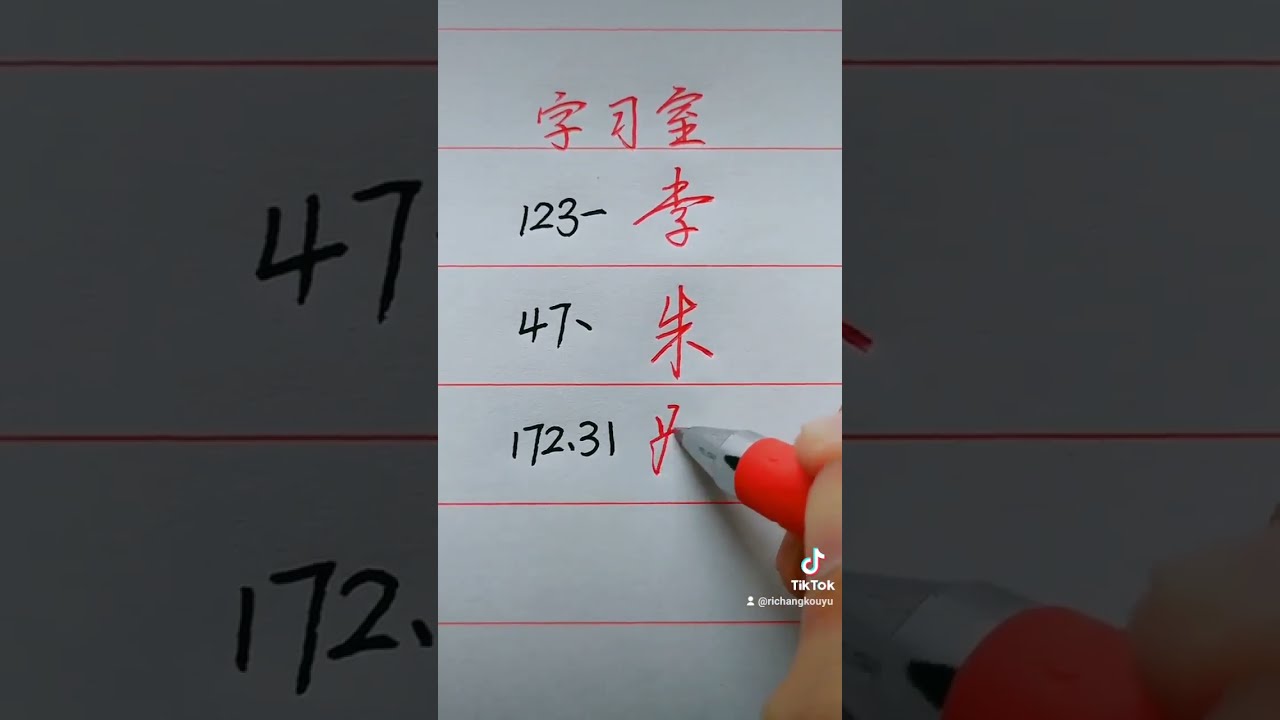 字习室
123一 李
47、 朱
172、31
TikTok
@richangkouyu